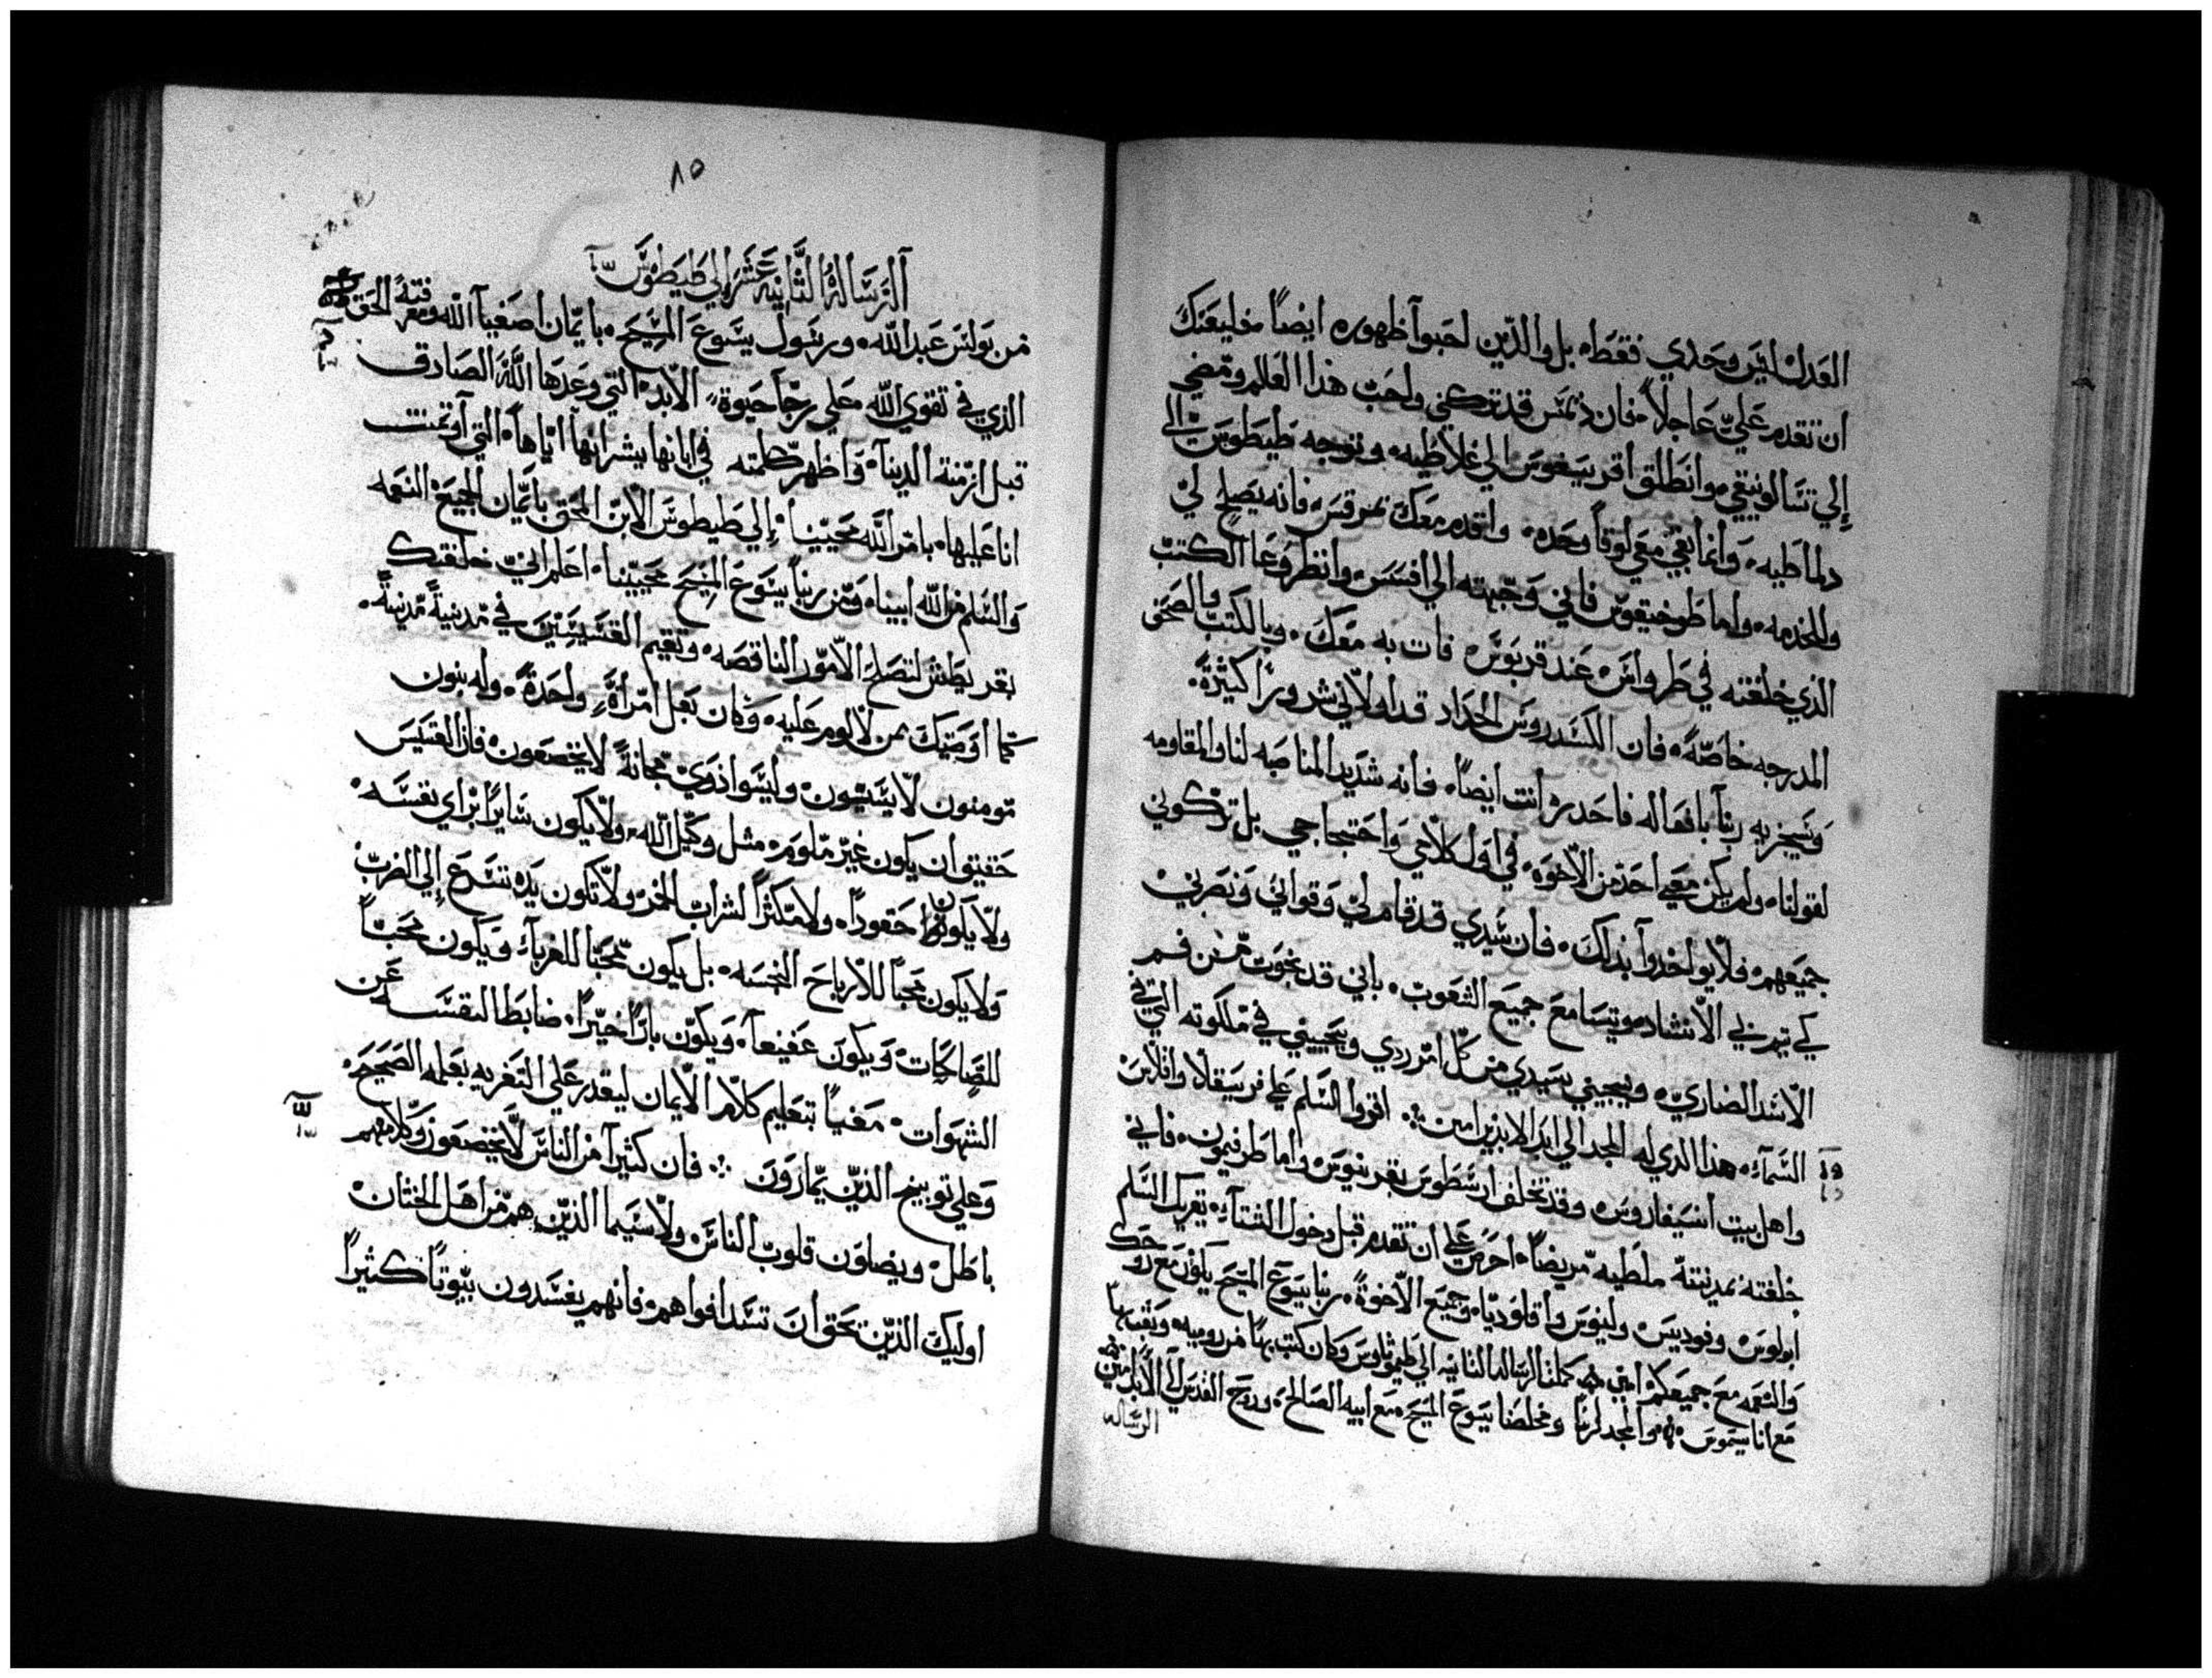 العدل ليس وحدي فقط بل والذين احبوا ظهوره ايضاً فليعنك
ان تقدم عليّ عاجلاً فان ديمس قد تركني واحب هذا العالم ومضي
إلي تسالونيقي وانطلق اقريسقوس الي غلاطيه وتوجه طيطوس الى
دلماطيه وانما بقي معي لوقا وحده واقدم معك بمرقس فانه يصلح لي
وللخدمه واما طوخيقوس فاني وجهته الي افسس وانظر وعا الكتب
الذي خلفته في طرواس عند قربوس فات به معك وبالكتب والصحف
المدرجه خاصّةً فان الكسدروس الحداد قد اولاني شروراً كثيرةً
وسيجزيه ربنا بافعاله فاحدره انت ايضاً فانه شديد المناصبه لنا والمقاومه
لقولنا ولم يكن معي احد من الاخوه في اول كلامي واحتجاجي بل تركوني
جميعهم فلا يواخدوا بذلك فان سيدي قد قام لي وقواني ونصرني
كي تيم بي الانشاد ويتسامع جميع الشعوب باني قد نجوت من فم
الاسد الضاري وينجيني سيدي من كل امر ردي ويحييني في ملكوته التي في
السماء هذا الذي له المجد الي ابد الابدين امين اقروا السلم علي فريسقلا واقلاس
واهل بيت انسيفاروس وقد تخلف ارسطوس بقرينتوس واما طرفيمون فاني
خلفته بمدينة ملطيه مريضاً احرص علي ان تقدم قبل دخول الشتاء يقريك السلم
ابولوس وفوديس ولينوس واقلوديا وجميع الاخوة ربنا يسوع المسيح يكون مع روحك
والنعمه مع جميعكم امين كملت الرساله الثانيه الي طيموثاوس وكان كتب بها من روميه وبعث بها
مع اناسيموس والمجد لربنا ومخلصنا يسوع المسيح مع ابيه الصالح وروح القدس الي الابد امين
الرساله
٨٥
الرسالة الثانية عشر الي طيطوس
من بولس عبد الله ورسول يسوع المسيح بايمان اصفيا الله ومعرفة الحق
الذي في تقوي الله علي رجا حيوة الابد التي وعدها الله الصادق
قبل ازمنة الدينا واظهر كلمته في ابانها ببشرانها اياها التي آوتمنت
انا عليها بامر الله محيينا إلي طيطوس الابن المحق بايمان الجميع النعمه
والسلم من الله ابينا ومن ربنا يسوع المسيح محيينا اعلم اني خلفتك
بقريطش لتصلح الامور الناقصه وتقيم القسيسين في مدينةً مدينةً
كما اوصيتك بمن لا لوم عليه وكان بعل امرأةٍ واحدةً وله بنون
مومنون لا يسبون وليسوا ذوي مجانةً لا يخضعون فان القسيس
حقيق ان يكون غير ملوم مثل وكيل الله ولا يكون سايراً براي نفسه
ولا يكون حقوداً ولا مكثراً لشراب الخمر ولا تكون يده تسرع إلي الضرب
ولا يكون محباً للارباح النجسه بل يكون محبا للغرباء ويكون محباً
للصالحات ويكون عفيفاً ويكون باراً خيّراً ضابطا لنفسه عن
الشهوات معنياً بتعليم كلام الايمان ليقدر علي التعزيه بعلمه الصحيح
وعلي توبيخ الذين يمارون فان كثيراً من الناس لا يخضعون وكلامهم
باطل ويضلون قلوب الناس ولا سيما الذين هم من اهل الختان
اوليك الذين تحق ان تسد افواهم فانهم يفسدون بيوتاً كثيراً